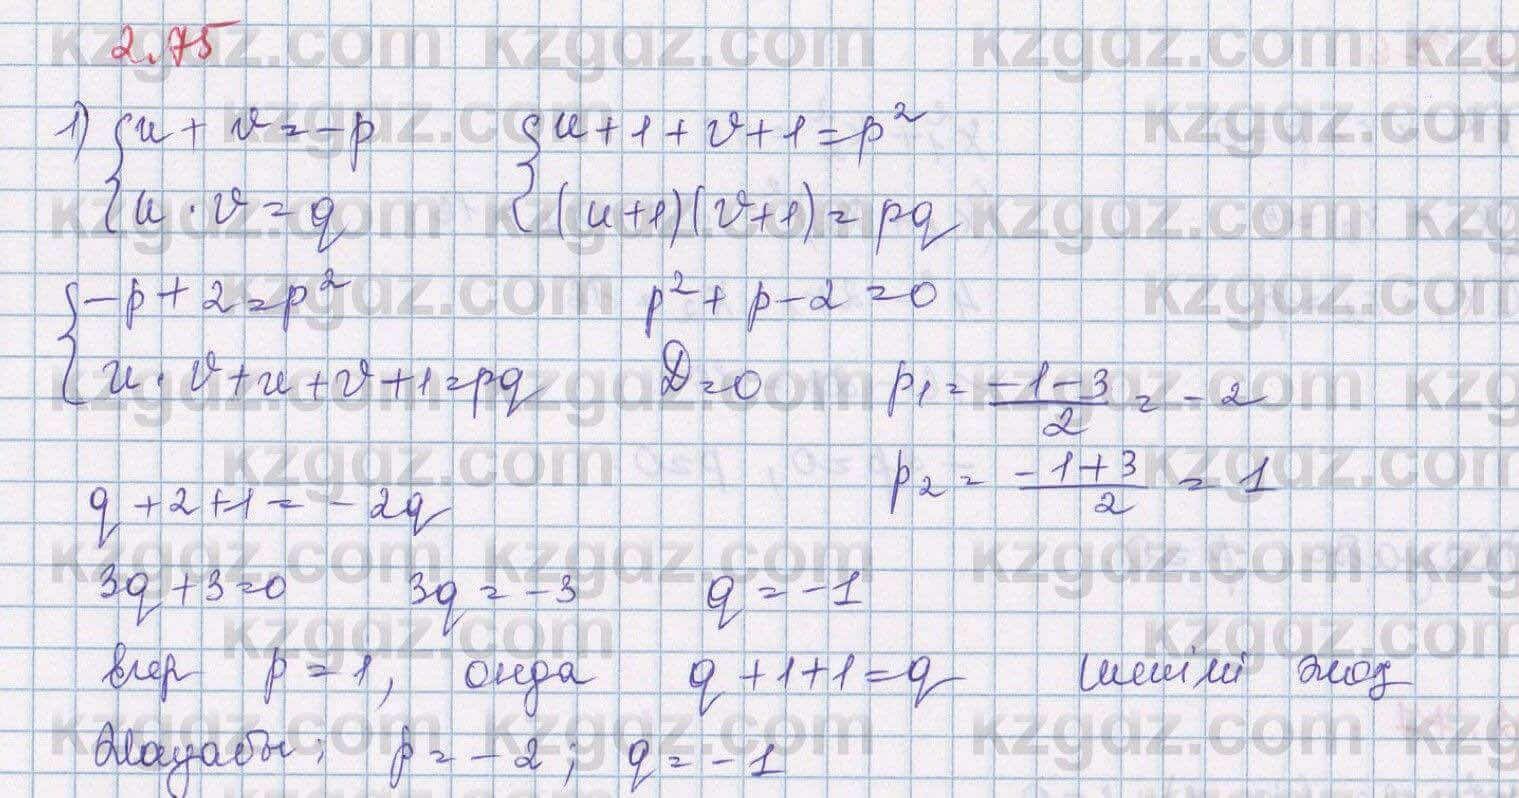 2.75
1) { u + v = -p     { u + 1 + v + 1 = p²
{ u · v = q     { (u+1)(v+1) = pq
{ -p + 2 = p²     p² + p - 2 = 0
{ u · v + u + v + 1 = pq     D = 0     p₁ = (-1-3)/2 = -2
p₂ = (-1+3)/2 = 1
q + 2 + 1 = -2q
3q + 3 = 0     3q = -3     q = -1
егер p = 1, онда q + 1 + 1 = q     шешімі жоқ
Жауабы: p = -2; q = -1
kzgdz.com